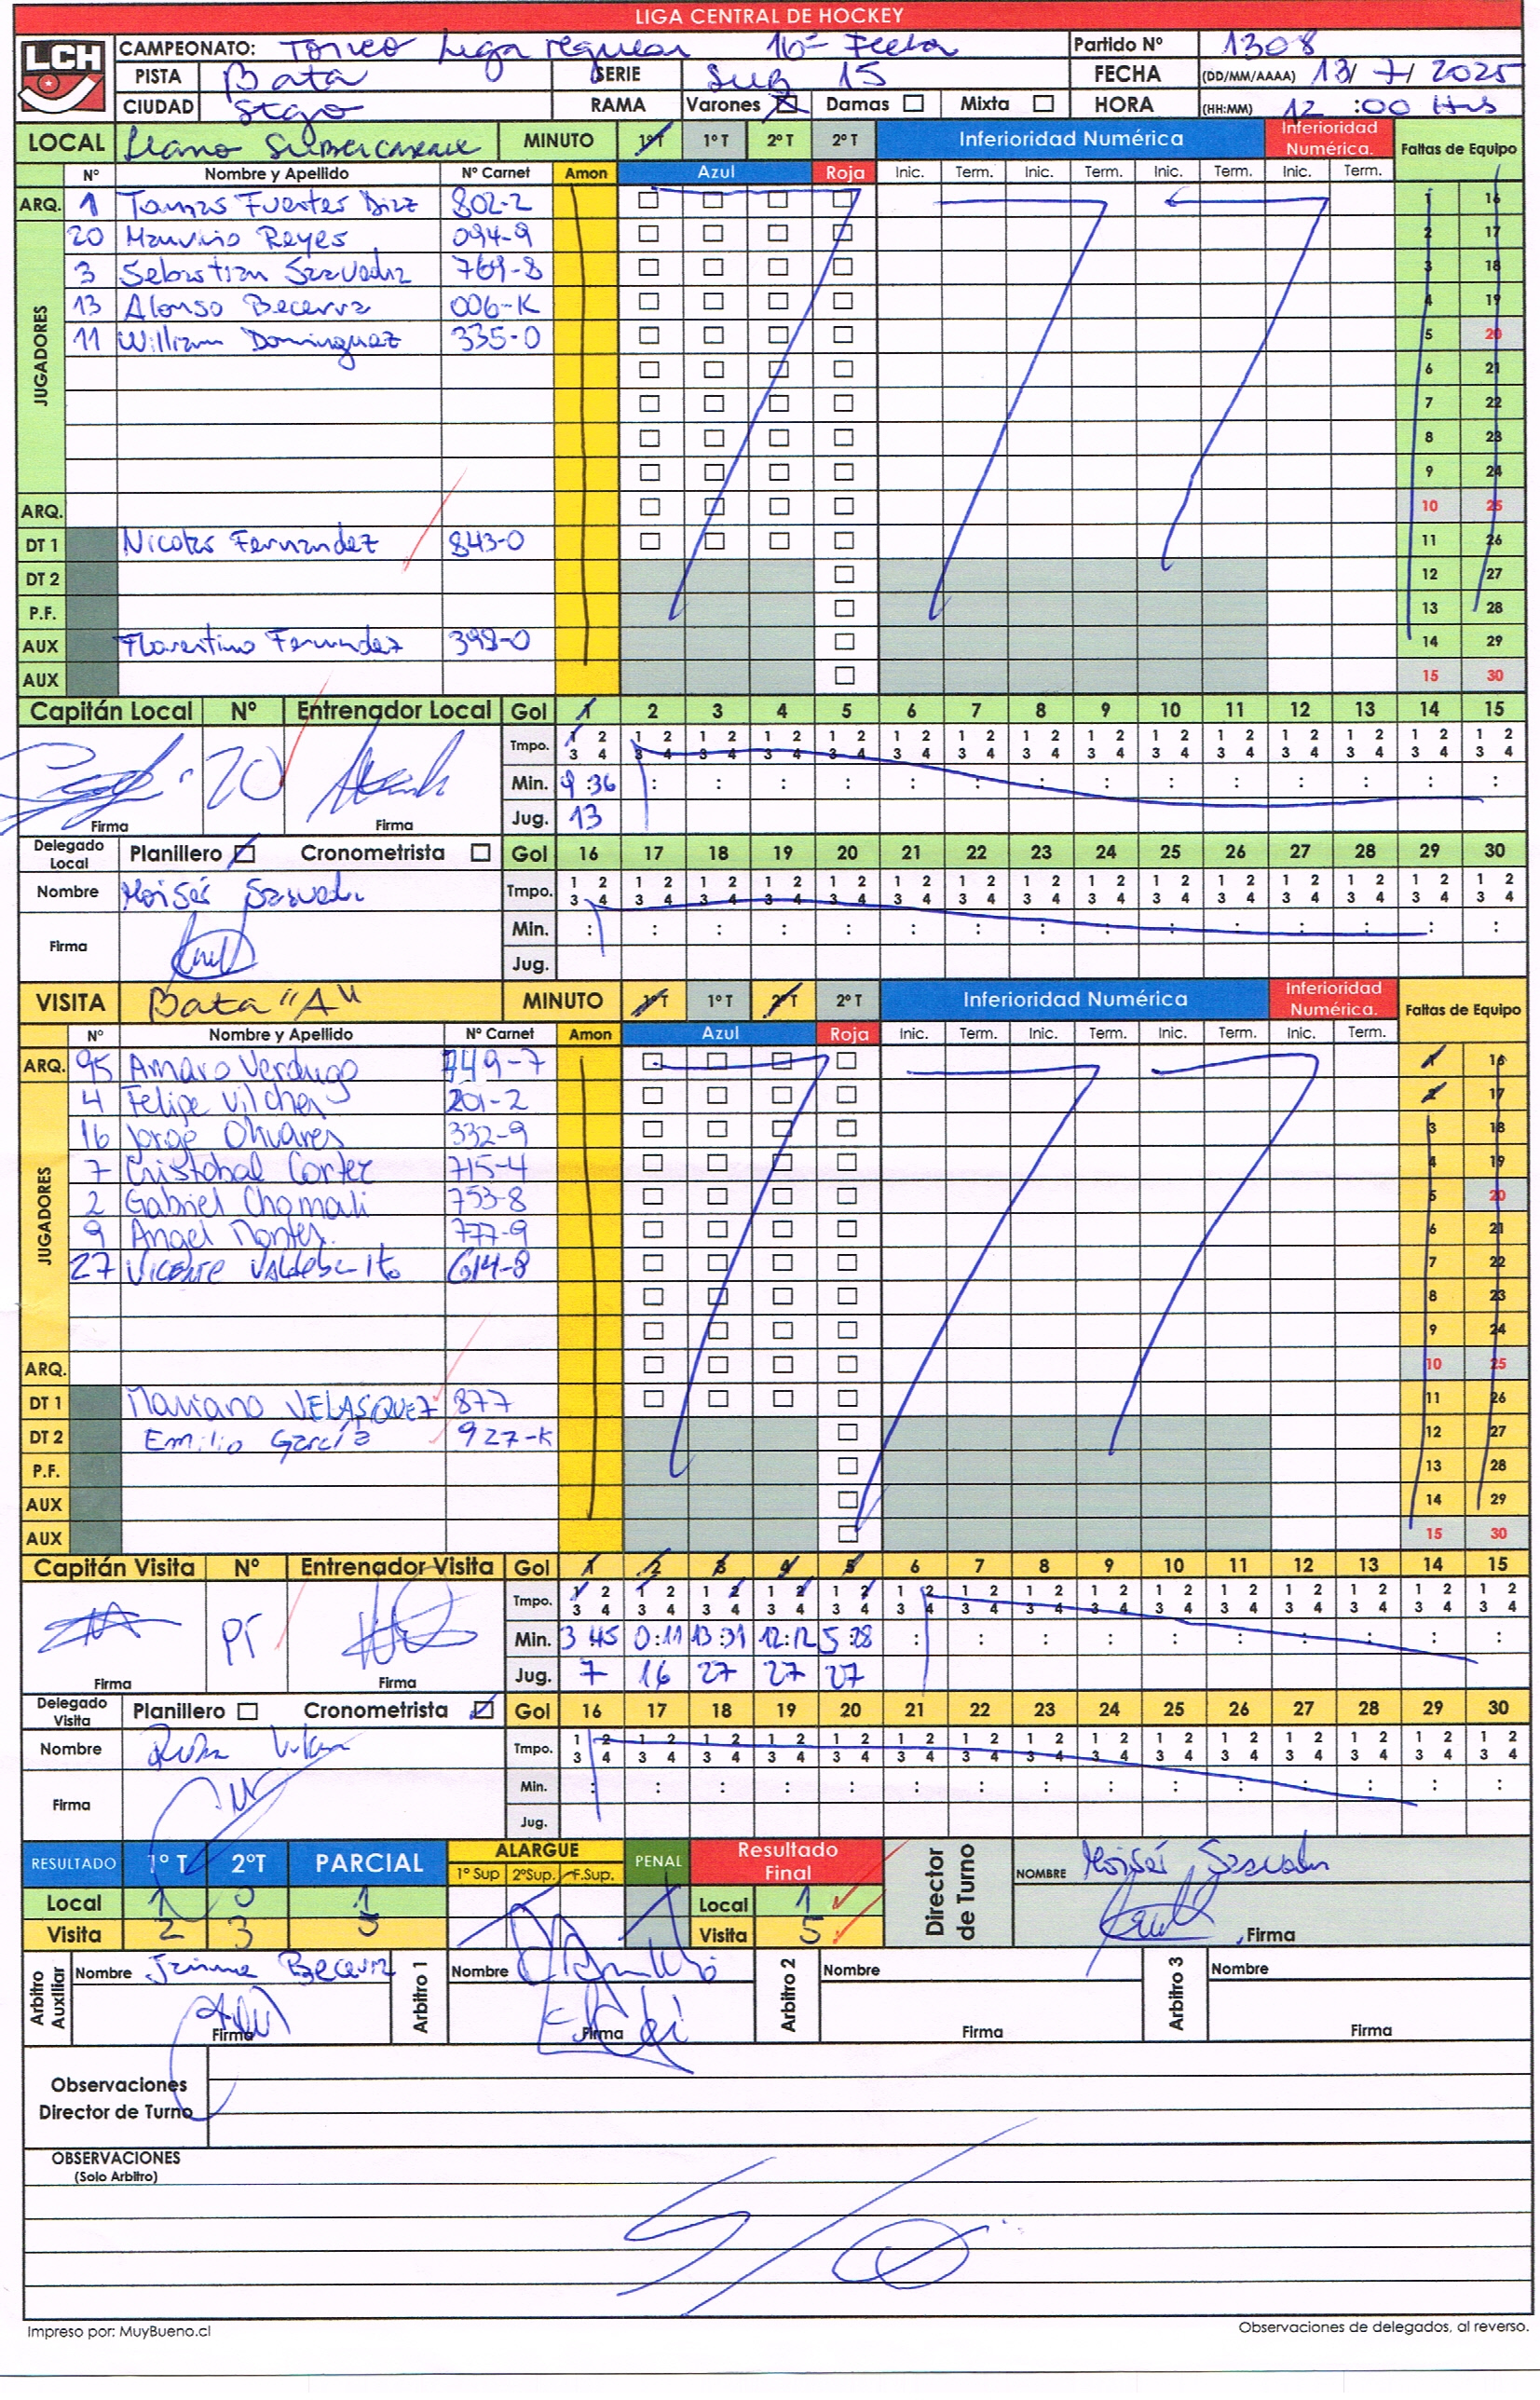 LIGA CENTRAL DE HOCKEY
LCH
CAMPEONATO: Torneo Liga regular 16º Fecha Partido Nº 1308
PISTA Bata SERIE Sub 15 FECHA (DD/MM/AAAA) 13/ 7/ 2025
CIUDAD Stgo RAMA Varones Damas Mixta HORA (HH:MM) 12 :00 Hrs
LOCAL Llano Subercaseaux MINUTO 1º T 1º T 2º T 2º T Inferioridad Numérica Inferioridad Numérica. Faltas de Equipo
Nº Nombre y Apellido Nº Carnet Amon Azul Roja Inic. Term. Inic. Term. Inic. Term. Inic. Term.
ARQ. 1 Tomas Fuentes Diaz 802-2 1 16
JUGADORES
20 Mauricio Reyes 094-9 2 17
3 Sebastian Saavedra 769-8 3 18
13 Alonso Becerra 006-K 4 19
11 William Dominguez 335-0 5 20
6 21
7 22
8 23
9 24
ARQ. 10 25
DT 1 Nicolas Fernandez 843-0 11 26
DT 2 12 27
P.F. 13 28
AUX Florentino Fernandez 398-0 14 29
AUX 15 30
Capitán Local Nº Entrenador Local Gol 1 2 3 4 5 6 7 8 9 10 11 12 13 14 15
Tmpo. 1 2 1 2 1 2 1 2 1 2 1 2 1 2 1 2 1 2 1 2 1 2 1 2 1 2 1 2 1 2
3 4 3 4 3 4 3 4 3 4 3 4 3 4 3 4 3 4 3 4 3 4 3 4 3 4 3 4 3 4
20 Min. 9 :36 : : : : : : : : : : : : : :
Firma Firma Jug. 13
Delegado Local Planillero Cronometrista Gol 16 17 18 19 20 21 22 23 24 25 26 27 28 29 30
Nombre Moisés Saavedra Tmpo. 1 2 1 2 1 2 1 2 1 2 1 2 1 2 1 2 1 2 1 2 1 2 1 2 1 2 1 2 1 2
3 4 3 4 3 4 3 4 3 4 3 4 3 4 3 4 3 4 3 4 3 4 3 4 3 4 3 4 3 4
Firma Min. : : : : : : : : : : : : : : :
Jug.
VISITA Bata "A" MINUTO 1º T 1º T 2º T 2º T Inferioridad Numérica Inferioridad Numérica. Faltas de Equipo
Nº Nombre y Apellido Nº Carnet Amon Azul Roja Inic. Term. Inic. Term. Inic. Term. Inic. Term.
ARQ. 95 Amaro Verdugo 749-7 1 16
JUGADORES
4 Felipe Vilches 201-2 2 17
16 Jorge Olivares 332-9 3 18
7 Cristobal Cortez 715-4 4 19
2 Gabriel Chomali 753-8 5 20
9 Angel Montes. 777-9 6 21
27 Vicente Valdebenito 614-8 7 22
8 23
9 24
ARQ. 10 25
DT 1 Mariano VELASQUEZ 877 11 26
DT 2 Emilio García 927-K 12 27
P.F. 13 28
AUX 14 29
AUX 15 30
Capitán Visita Nº Entrenador Visita Gol 1 2 3 4 5 6 7 8 9 10 11 12 13 14 15
Tmpo. 1 2 1 2 1 2 1 2 1 2 1 2 1 2 1 2 1 2 1 2 1 2 1 2 1 2 1 2 1 2
3 4 3 4 3 4 3 4 3 4 3 4 3 4 3 4 3 4 3 4 3 4 3 4 3 4 3 4 3 4
Min. 3 45 0:11 13:31 12:12 5:28 : : : : : : : : : :
Firma Firma Jug. 7 16 27 27 27
Delegado Visita Planillero Cronometrista Gol 16 17 18 19 20 21 22 23 24 25 26 27 28 29 30
Nombre Tmpo. 1 2 1 2 1 2 1 2 1 2 1 2 1 2 1 2 1 2 1 2 1 2 1 2 1 2 1 2 1 2
3 4 3 4 3 4 3 4 3 4 3 4 3 4 3 4 3 4 3 4 3 4 3 4 3 4 3 4 3 4
Firma Min. : : : : : : : : : : : : : : :
Jug.
RESULTADO 1º T 2ºT PARCIAL ALARGUE 1º Sup 2ºSup. F.Sup. PENAL Resultado Final Director de Turno NOMBRE Moisés Saavedra
Local 1 0 1 Local 1
Visita 2 3 5 Visita 5 Firma
Arbitro Auxiliar Nombre Jaime Becerra Arbitro 1 Nombre Arbitro 2 Nombre Arbitro 3 Nombre
Firma Firma Firma Firma
Observaciones
Director de Turno
OBSERVACIONES
(Solo Arbitro)
Impreso por: MuyBueno.cl Observaciones de delegados, al reverso.